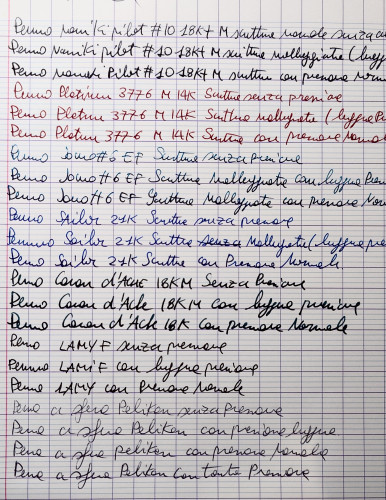 Penno Namiki pilot #10 18K+ M scritture normale senza
Penno Namiki pilot #10 18K+ M scritture molleggiata (leggera
Penno Namiki Pilot #10 18K+ M scrittura con pressione normale
Penno Platinum 3776 M 14K Scrittura senza pressione
Penno Platinum 3776 M 14K Scrittura molleggiata (leggera Pre
Penno Platinum 3776 M 14K Scrittura con pressione Normale
Penno Jowo #6 EF Scrittura senza pressione
Penno Jowo #6 EF Scrittura Molleggiata con leggera Pressione
Penno Jowo #6 EF Scrittura Molleggiata con pressione Nor
Penno Sailor 21K Scrittura senza pressione
Penno Sailor 21K Scrittura senza Molleggiata (leggera pre
Penno Sailor 21K Scrittura con Pressione Normale.
Penno Caran d'Ache 18K M Senza Pressione
Penno Caran d'Ache 18K M con leggera pressione
Penno Caran d'Ache 18K con pressione Normale
Penno LAMY F senza pressione
Penno LAMY F con leggera pressione
Penno LAMY con Pressione Normale
Penna a sfera Pelikan senza pressione
Penna a sfera Pelikan con pressione leggera
Penna a sfera pelikan con pressione normale
Penna a sfera Pelikan con tanta Pressione